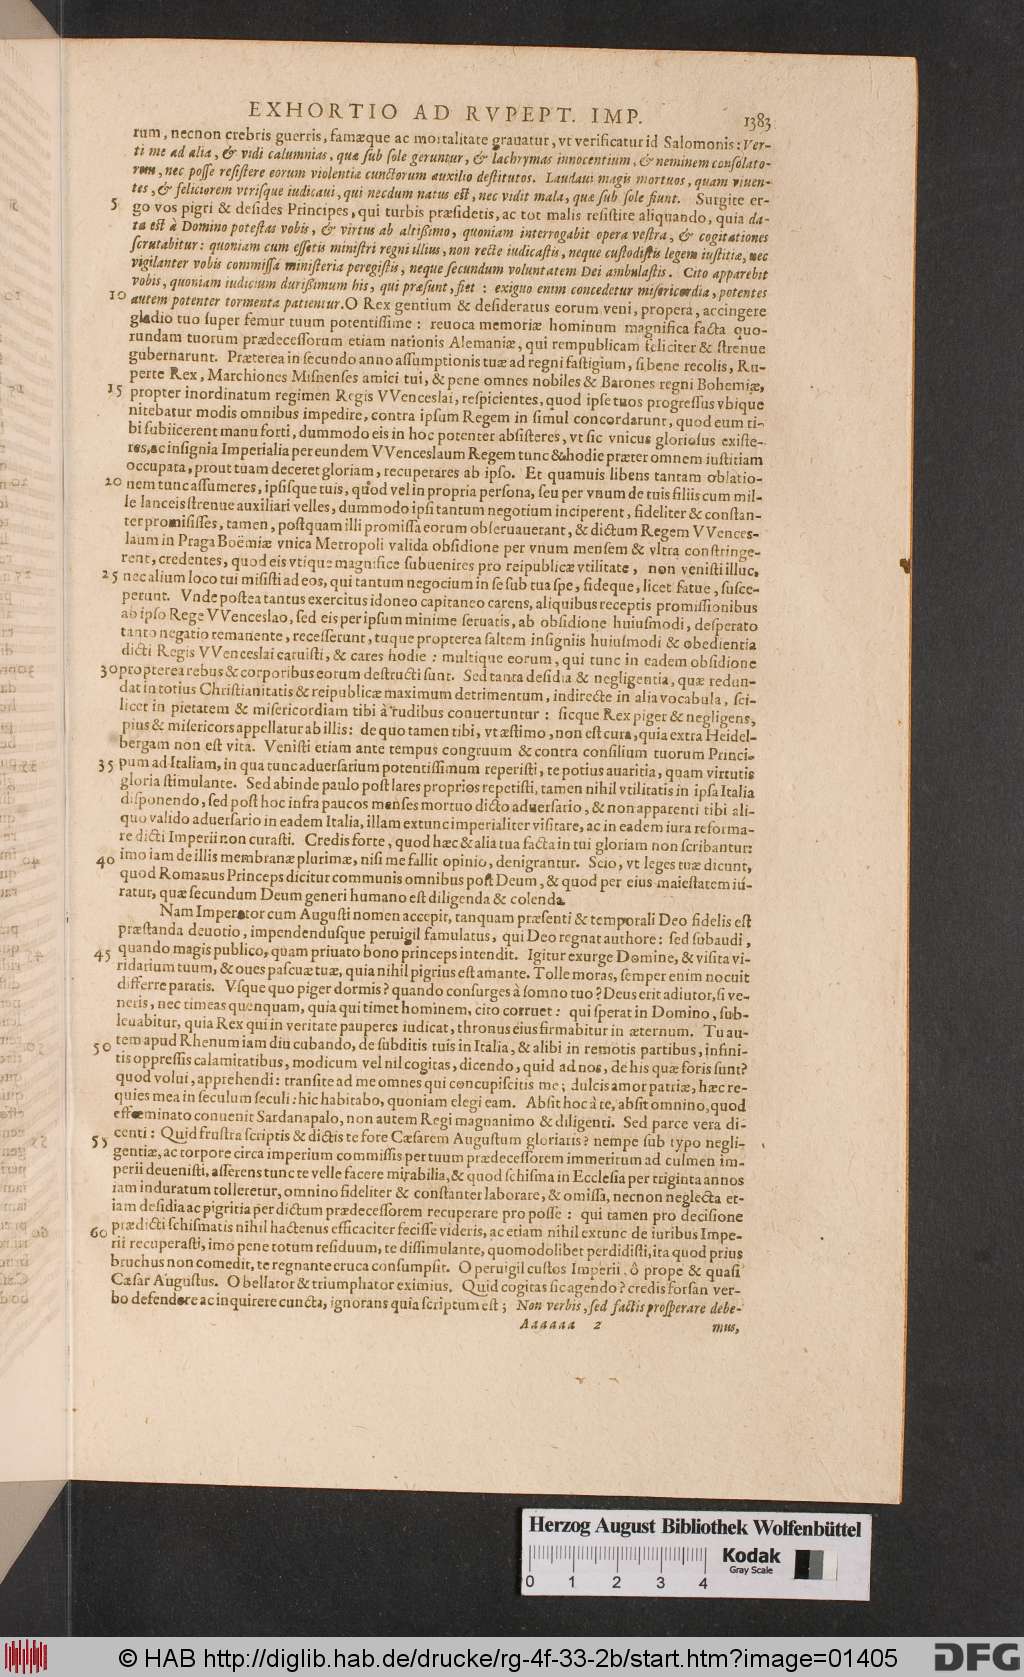 EXHORTIO AD RVPEPT. IMP. 1383
rum, necnon crebris guerris, famæque ac mortalitate grauatur, vt verificatur id Salomonis: Ver-
ti me ad alia, & vidi calumnias, quæ sub sole geruntur, & lachrymas innocentium, & neminem consolato-
rem, nec posse resistere eorum violentiæ cunctorum auxilio destitutos. Laudaui magis mortuos, quam viuen-
tes, & feliciorem vtrisque iudicaui, qui necdum natus est, nec vidit mala, quæ sub sole fiunt. Surgite er-
5 go vos pigri & desides Principes, qui turbis præsidetis, ac tot malis resistite aliquando, quia da-
ta est à Domino potestas vobis, & virtus ab altißimo, quoniam interrogabit opera vestra, & cogitationes
scrutabitur: quoniam cum essetis ministri regni illius, non recte iudicastis, neque custodistis legem iustitiæ, nec
vigilanter vobis commissa ministeria peregistis, neque secundum voluntatem Dei ambulastis. Cito apparebit
vobis, quoniam iudicium durißimum his, qui præsunt, fiet: exiguo enim concedetur misericordia, potentes
10 autem potenter tormenta patientur. O Rex gentium & desideratus eorum veni, propera, accingere
gladio tuo super femur tuum potentissime: reuoca memoriæ hominum magnifica facta quo-
rundam tuorum prædecessorum etiam nationis Alemaniæ, qui rempublicam feliciter & strenue
gubernarunt. Præterea in secundo anno assumptionis tuæ ad regni fastigium, si bene recolis, Ru-
perte Rex, Marchiones Misnenses amici tui, & pene omnes nobiles & Barones regni Bohemiæ,
15 propter inordinatum regimen Regis VVenceslai, respicientes, quod ipse tuos progressus vbique
nitebatur modis omnibus impedire, contra ipsum Regem in simul concordarunt, quod eum ti-
bi subiicerent manu forti, dummodo eis in hoc potenter absisteres, vt sic vnicus gloriosus existe-
res, ac insignia Imperialia per eundem VVenceslaum Regem tunc & hodie præter omnem iustitiam
occupata, prout tuam deceret gloriam, recuperares ab ipso. Et quamuis libens tantam oblatio-
20 nem tunc assumeres, ipsisque tuis, quod vel in propria persona, seu per vnum de tuis filiis cum mil-
le lanceis strenue auxiliari velles, dummodo ipsi tantum negotium inciperent, fideliter & constan-
ter promisisses, tamen, postquam illi promissa eorum obseruauerant, & dictum Regem VVences-
laum in Praga Boëmiæ vnica Metropoli valida obsidione per vnum mensem & vltra constringe-
rent, credentes, quod eis vtique magnifice subuenires pro reipublicæ vtilitate, non venisti illuc,
25 nec alium loco tui misisti ad eos, qui tantum negocium in se sub tua spe, fideque, licet fatue, susce-
perunt. Vnde postea tantus exercitus idoneo capitaneo carens, aliquibus receptis promissionibus
ab ipso Rege VVenceslao, sed eis per ipsum minime seruatis, ab obsidione huiusmodi, desperato
tanto negatio remanente, recesserunt, tuque propterea saltem insigniis huiusmodi & obedientia
dicti Regis VVenceslai caruisti, & cares hodie: multique eorum, qui tunc in eadem obsidione
30 propterea rebus & corporibus eorum destructi sunt. Sed tanta desidia & negligentia, quæ redun-
dat in totius Christianitatis & reipublicæ maximum detrimentum, indirecte in alia vocabula, sci-
licet in pietatem & misericordiam tibi à rudibus conuertuntur: sicque Rex piger & negligens,
pius & misericors appellatur ab illis: de quo tamen tibi, vt æstimo, non est cura, quia extra Heidel-
bergam non est vita. Venisti etiam ante tempus congruum & contra consilium tuorum Princi-
35 pum ad Italiam, in qua tunc aduersarium potentissimum reperisti, te potius auaritia, quam virtutis
gloria stimulante. Sed abinde paulo post lares proprios repetisti, tamen nihil vtilitatis in ipsa Italia
disponendo, sed post hoc infra paucos menses mortuo dicto aduersario, & non apparenti tibi ali-
quo valido aduersario in eadem Italia, illam extunc imperialiter visitare, ac in eadem iura reforma-
re dicti Imperii non curasti. Credis forte, quod hæc & alia tua facta in tui gloriam non scribantur:
40 imo iam de illis membranæ plurimæ, nisi me fallit opinio, denigrantur. Scio, vt leges tuæ dicunt,
quod Romanus Princeps dicitur communis omnibus post Deum, & quod per eius maiestatem iu-
ratur, quæ secundum Deum generi humano est diligenda & colenda.
Nam Imperator cum Augusti nomen accepit, tanquam præsenti & temporali Deo fidelis est
præstanda deuotio, impendendusque peruigil famulatus, qui Deo regnat authore: sed subaudi,
45 quando magis publico, quam priuato bono princeps intendit. Igitur exurge Domine, & visita vi-
ridarium tuum, & oues pascuæ tuæ, quia nihil pigrius est amante. Tolle moras, semper enim nocuit
differre paratis. Vsque quo piger dormis? quando consurges à somno tuo? Deus erit adiutor, si ve-
neris, nec timeas quenquam, quia qui timet hominem, cito corruet: qui sperat in Domino, sub-
leuabitur, quia Rex qui in veritate pauperes iudicat, thronus eius firmabitur in æternum. Tu au-
50 tem apud Rhenum iam diu cubando, de subditis tuis in Italia, & alibi in remotis partibus, infini-
tis oppressis calamitatibus, modicum vel nil cogitas, dicendo, quid ad nos, de his quæ foris sunt?
quod volui, apprehendi: transite ad me omnes qui concupiscitis me; dulcis amor patriæ, hæc re-
quies mea in seculum seculi: hic habitabo, quoniam elegi eam. Absit hoc à te, absit omnino, quod
effœminato conuenit Sardanapalo, non autem Regi magnanimo & diligenti. Sed parce vera di-
55 centi: Quid frustra scriptis & dictis te fore Cæsarem Augustum gloriaris? nempe sub typo negli-
gentiæ, ac torpore circa imperium commissis per tuum prædecessorem immeritum ad culmen im-
perii deuenisti, asserens tunc te velle facere mirabilia, & quod schisma in Ecclesia per triginta annos
iam induratum tolleretur, omnino fideliter & constanter laborare, & omissa, necnon neglecta et-
iam desidia ac pigritia per dictum prædecessorem recuperare pro posse: qui tamen pro decisione
60 prædicti schismatis nihil hactenus efficaciter fecisse videris, ac etiam nihil extunc de iuribus Impe-
rii recuperasti, imo pene totum residuum, te dissimulante, quomodolibet perdidisti, ita quod prius
bruchus non comedit, te regnante eruca consumpsit. O peruigil custos Imperii, ô prope & quasi
Cæsar Augustus. O bellator & triumphator eximius. Quid cogitas sic agendo? credis forsan ver-
bo defendere ac inquirere cuncta, ignorans quia scriptum est; Non verbis, sed factis prosperare debe-
Aaaaaa 2 mus,
Herzog August Bibliothek Wolfenbüttel
Kodak
Gray Scale
0 1 2 3 4
© HAB http://diglib.hab.de/drucke/rg-4f-33-2b/start.htm?image=01405
DFG